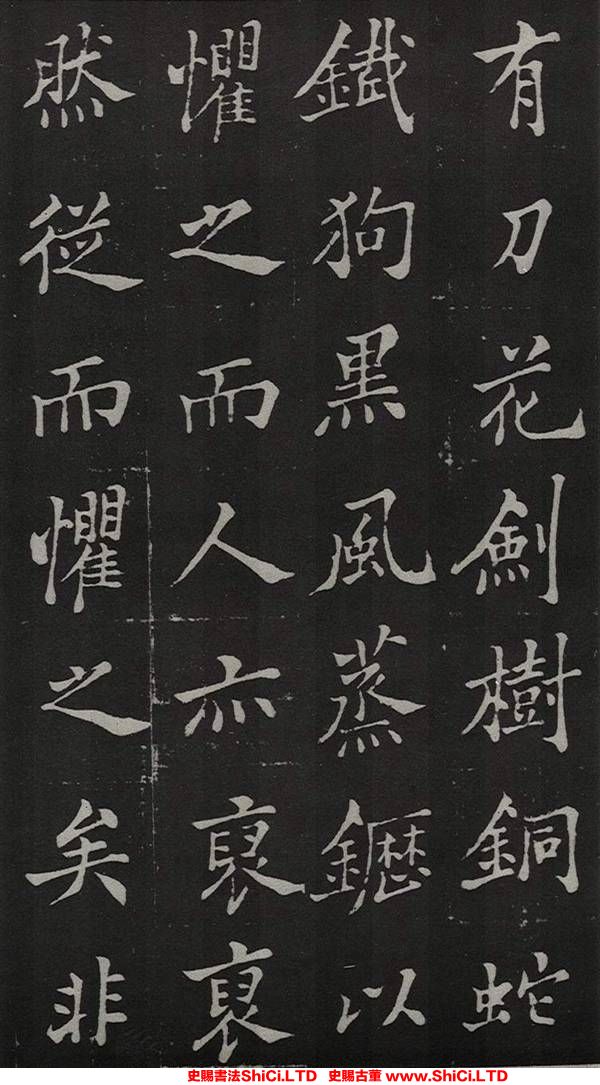 有刀花劍樹銅蛇
鐵狗黑風蒸䥶以
懼之而人亦裒裒
然從而懼之矣非
史賜書法ShiCi.LTD 史賜古董 www.ShiCi.LTD